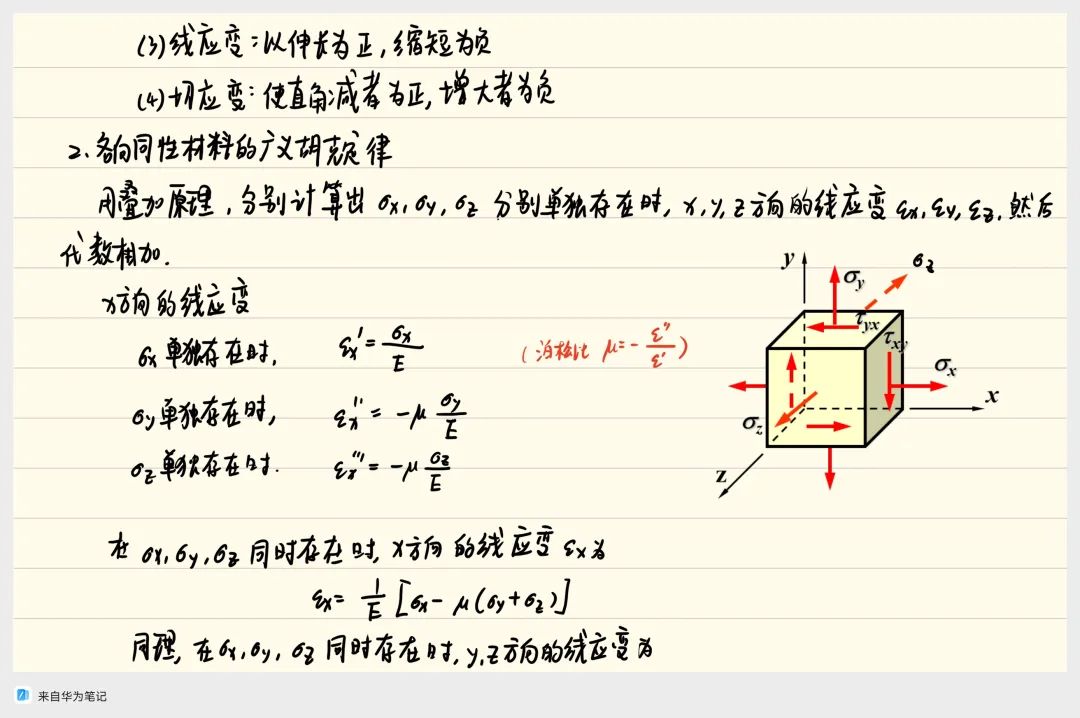 (3)线应变:以伸长为正,缩短为负
(4)切应变:使直角减者为正,增大者为负
2、各向同性材料的广义胡克定律
用叠加原理,分别计算出 σx,σy,σz 分别单独存在时,x,y,z方向的线应变 εx,εy,εz,然后
代数相加.
x方向的线应变
σx 单独存在时, εx' = σx/E (泊松比 μ = - ε''/ε')
σy 单独存在时, εx'' = -μ σy/E
σz 单独存在时. εx''' = -μ σz/E
y
σy
σz
τyx
τxy
σx
x
σz
z
在 σx,σy,σz 同时存在时,x方向的线应变 εx为
εx = 1/E [σx - μ(σy+σz)]
同理,在σx,σy,σz 同时存在时,y,z方向的线应变为
来自华为笔记